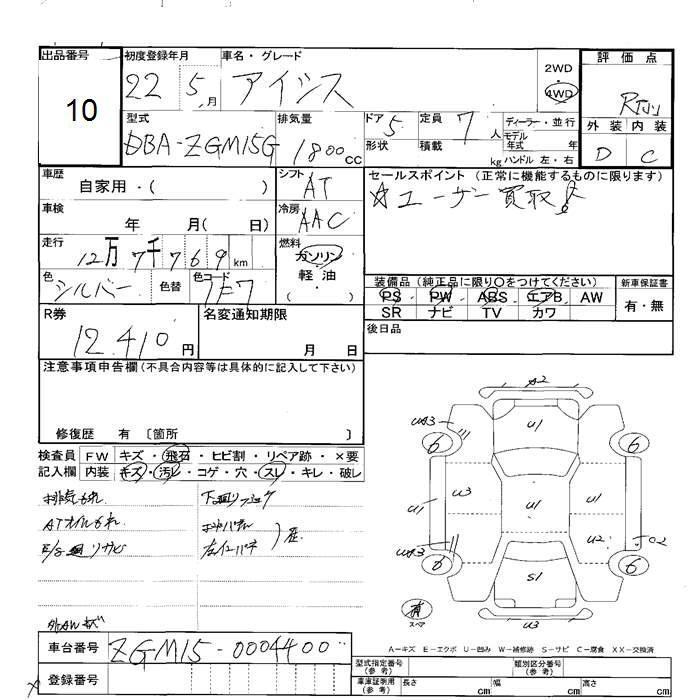 出品番号 初度登録年月 車名・グレード 2WD 評価点
10 22 5月 アイシス 4WD
型式 排気量 ドア 5 定員 7人 ディーラー・並行 外装 内装
DBA-ZGM15G 1800cc 形状 積載 kg モデル年式 年 D C
ハンドル 左・右
車歴 シフト セールスポイント (正常に機能するものに限ります)
自家用・( ) AT ☆ユーザー買取
車検 冷房
年 月( 日) AAC
走行 燃料
12万7千769km ガソリン
色 色替 色コード 軽油 装備品 (純正品に限り○をつけてください) 新車保証書
シルバー 1E7 ( ・ ) PS PW ABS エアB AW 有・無
R券 名変通知期限 SR ナビ TV カワ
12,410円 月 日 後日品
注意事項申告欄 (不具合内容等は具体的に記入して下さい)
修復歴 有 〔箇所 〕
検査員 FW キズ・飛石・ヒビ割・リペア跡・×要
記入欄 内装 キズ・汚レ・コゲ・穴・スレ・キレ・破レ
排気もれ
ATオイルもれ
A2
U1
6 6
U3 U1 U1
U1
U2
6 6
S1
U3
有
スペア
A-キズ E-エクボ U-凹み W-補修跡 S-サビ C-腐食 XX-交換済
車台番号 ZGM15-0004400
登録番号
型式指定番号 (参考) 類別区分番号 (参考)
車庫証明用 (参考) 長さ cm 幅 cm 高さ cm